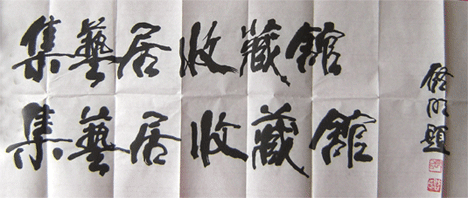 集藝居收藏館
集藝居收藏館
題